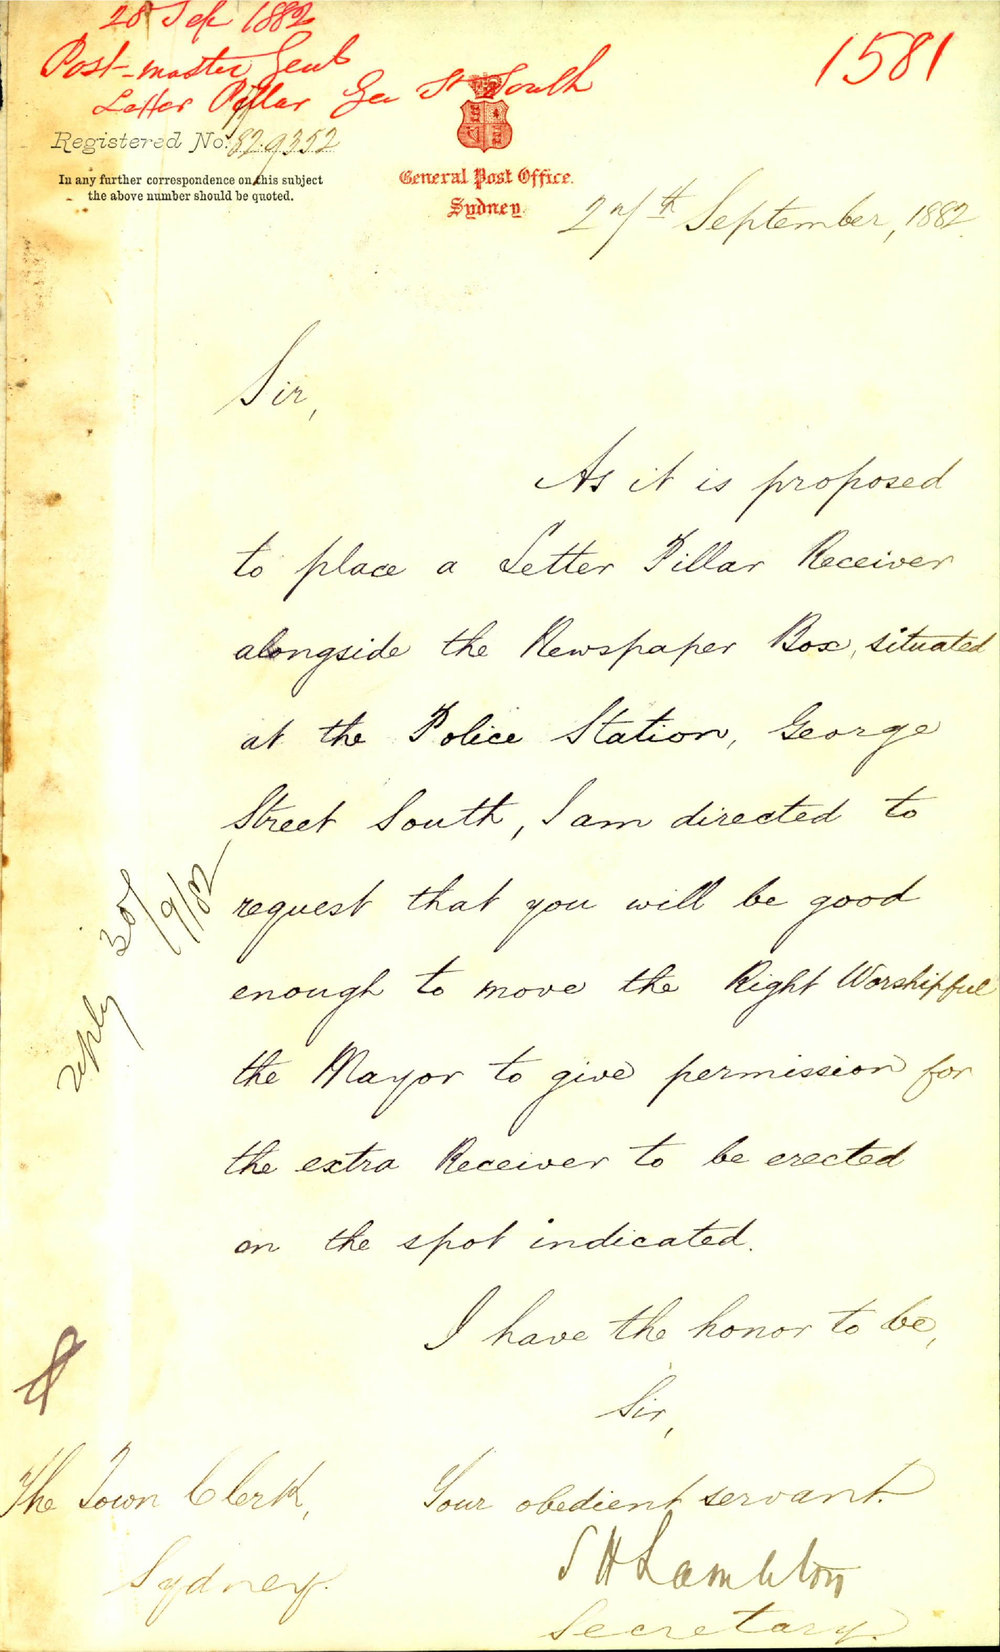 28 Sep 1882
Post-master Genl
Letter Pillar Geo St South
1581
Registered No. 82.9352
In any further correspondence on this subject
the above number should be quoted.
General Post Office.
Sydney.
27th September, 1882.
Sir,
As it is proposed
to place a Letter Pillar Receiver
alongside the Newspaper Box, situated
at the Police Station, George
Street South, I am directed to
request that you will be good
enough to move the Right Worshipful
the Mayor to give permission for
the extra Receiver to be erected
on the spot indicated.
reply 30/9/82
I have the honor to be,
Sir,
Your obedient servant.
S H Lambton
Secretary.
The Town Clerk,
Sydney.